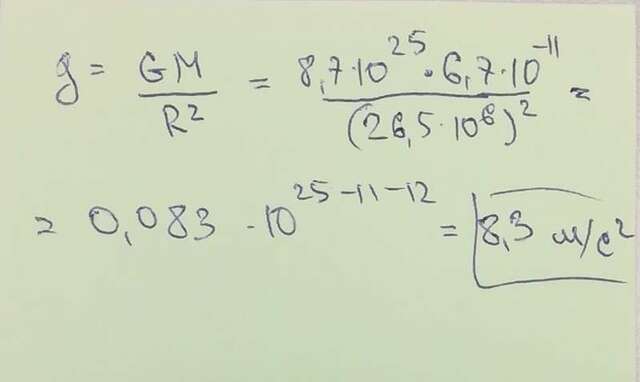 g = GM / R² = 8,7·10²⁵ · 6,7·10⁻¹¹ / (26,5·10⁶)² =
= 0,083 · 10²⁵⁻¹¹⁻¹² = 8,3 м/с²